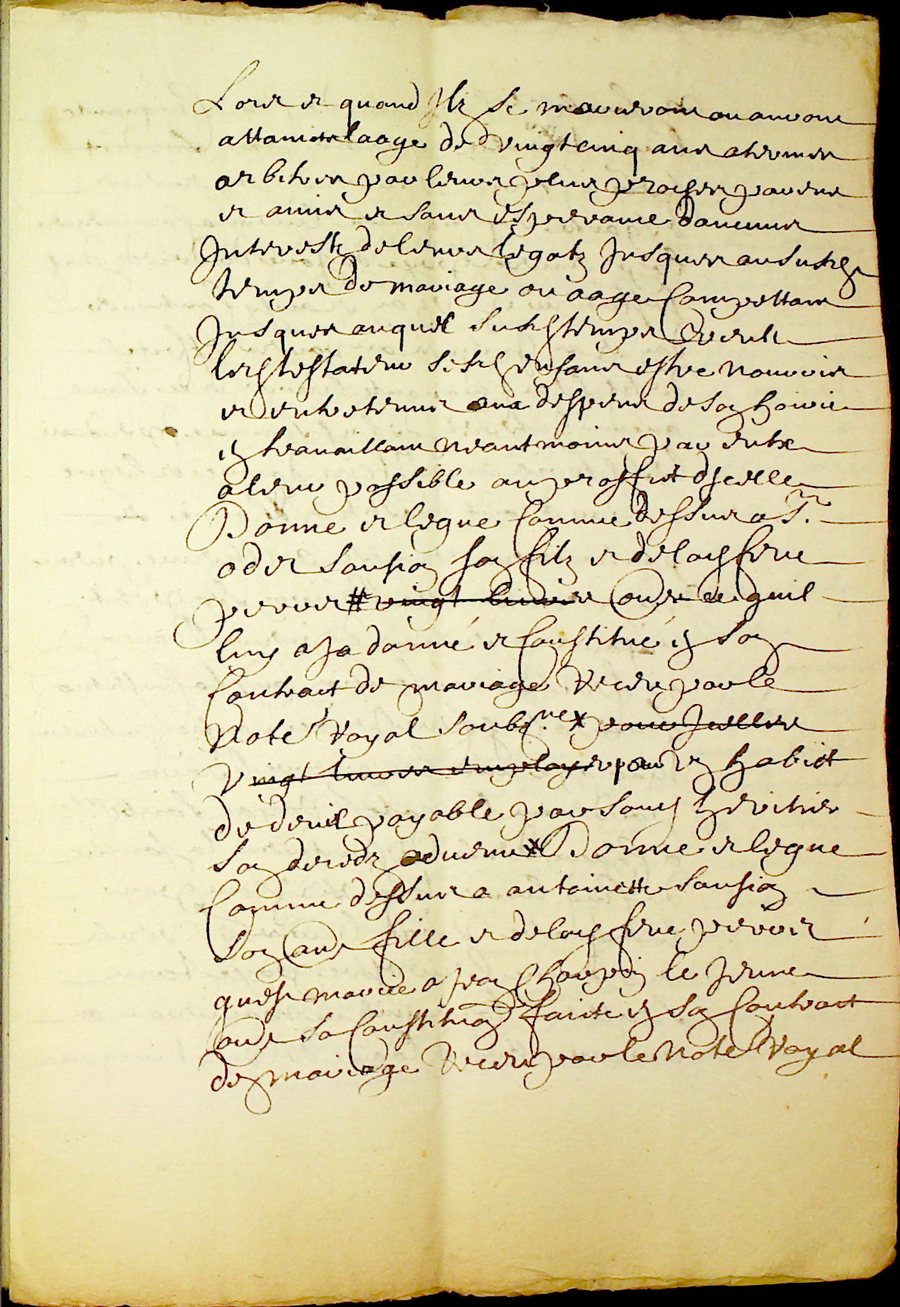 Lors et quand Ilz se marieront ou auront
attaint laage de vingt cinq ans a termes
arbitres par leurs plus proches parens
et amis et sans esperance daucuns
Interestz de leurs legatz Jusques au susd
temps de mariage ou aage Compettant
Jusques auquel susd temps Veult
led testateur sesd enfans estre nourris
et entretenus aux despens de son hoirie
en travaillant neantmoins par eulx
a leur possible au proffict dicelle
Donne et legue Comme dessus a Sr
odet sausion son filz et de lad feue
perrois # vingt livres oultre ce quil
luy a Ja donné et Constitué en son
Contract de mariage Receu par le
Note Royal soubsne x pour Icelles
Vingt livres employer pour Un habict
de deuil payable par sond heritier
son deceds advenu x Donne et legue
Comme dessus a antoinette sausion
son aude fille et de lad feue perrois
quest mariee a Jean Chappuis le Jeune
oultre sa Constitution faicte en son Contract
de mariage Receu par le Note Royal